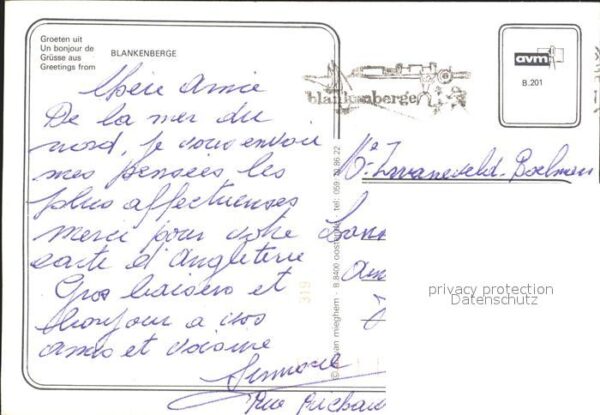 Groeten uit
Un bonjour de
Grüsse aus
Greetings from
BLANKENBERGE
Chère Amie
De la mer du
nord, je vous envoie
mes pensées les
plus affectueuses
merci pour votre
carte d'Angleterre
Gros baisers et
bonjour a vos
amis et voisine
Rue
blankenberge
avm
B.201
Zwaneveld-Boelman
mieghem - B 8400 oostende - tel: 059
319
privacy protection
Datenschutz